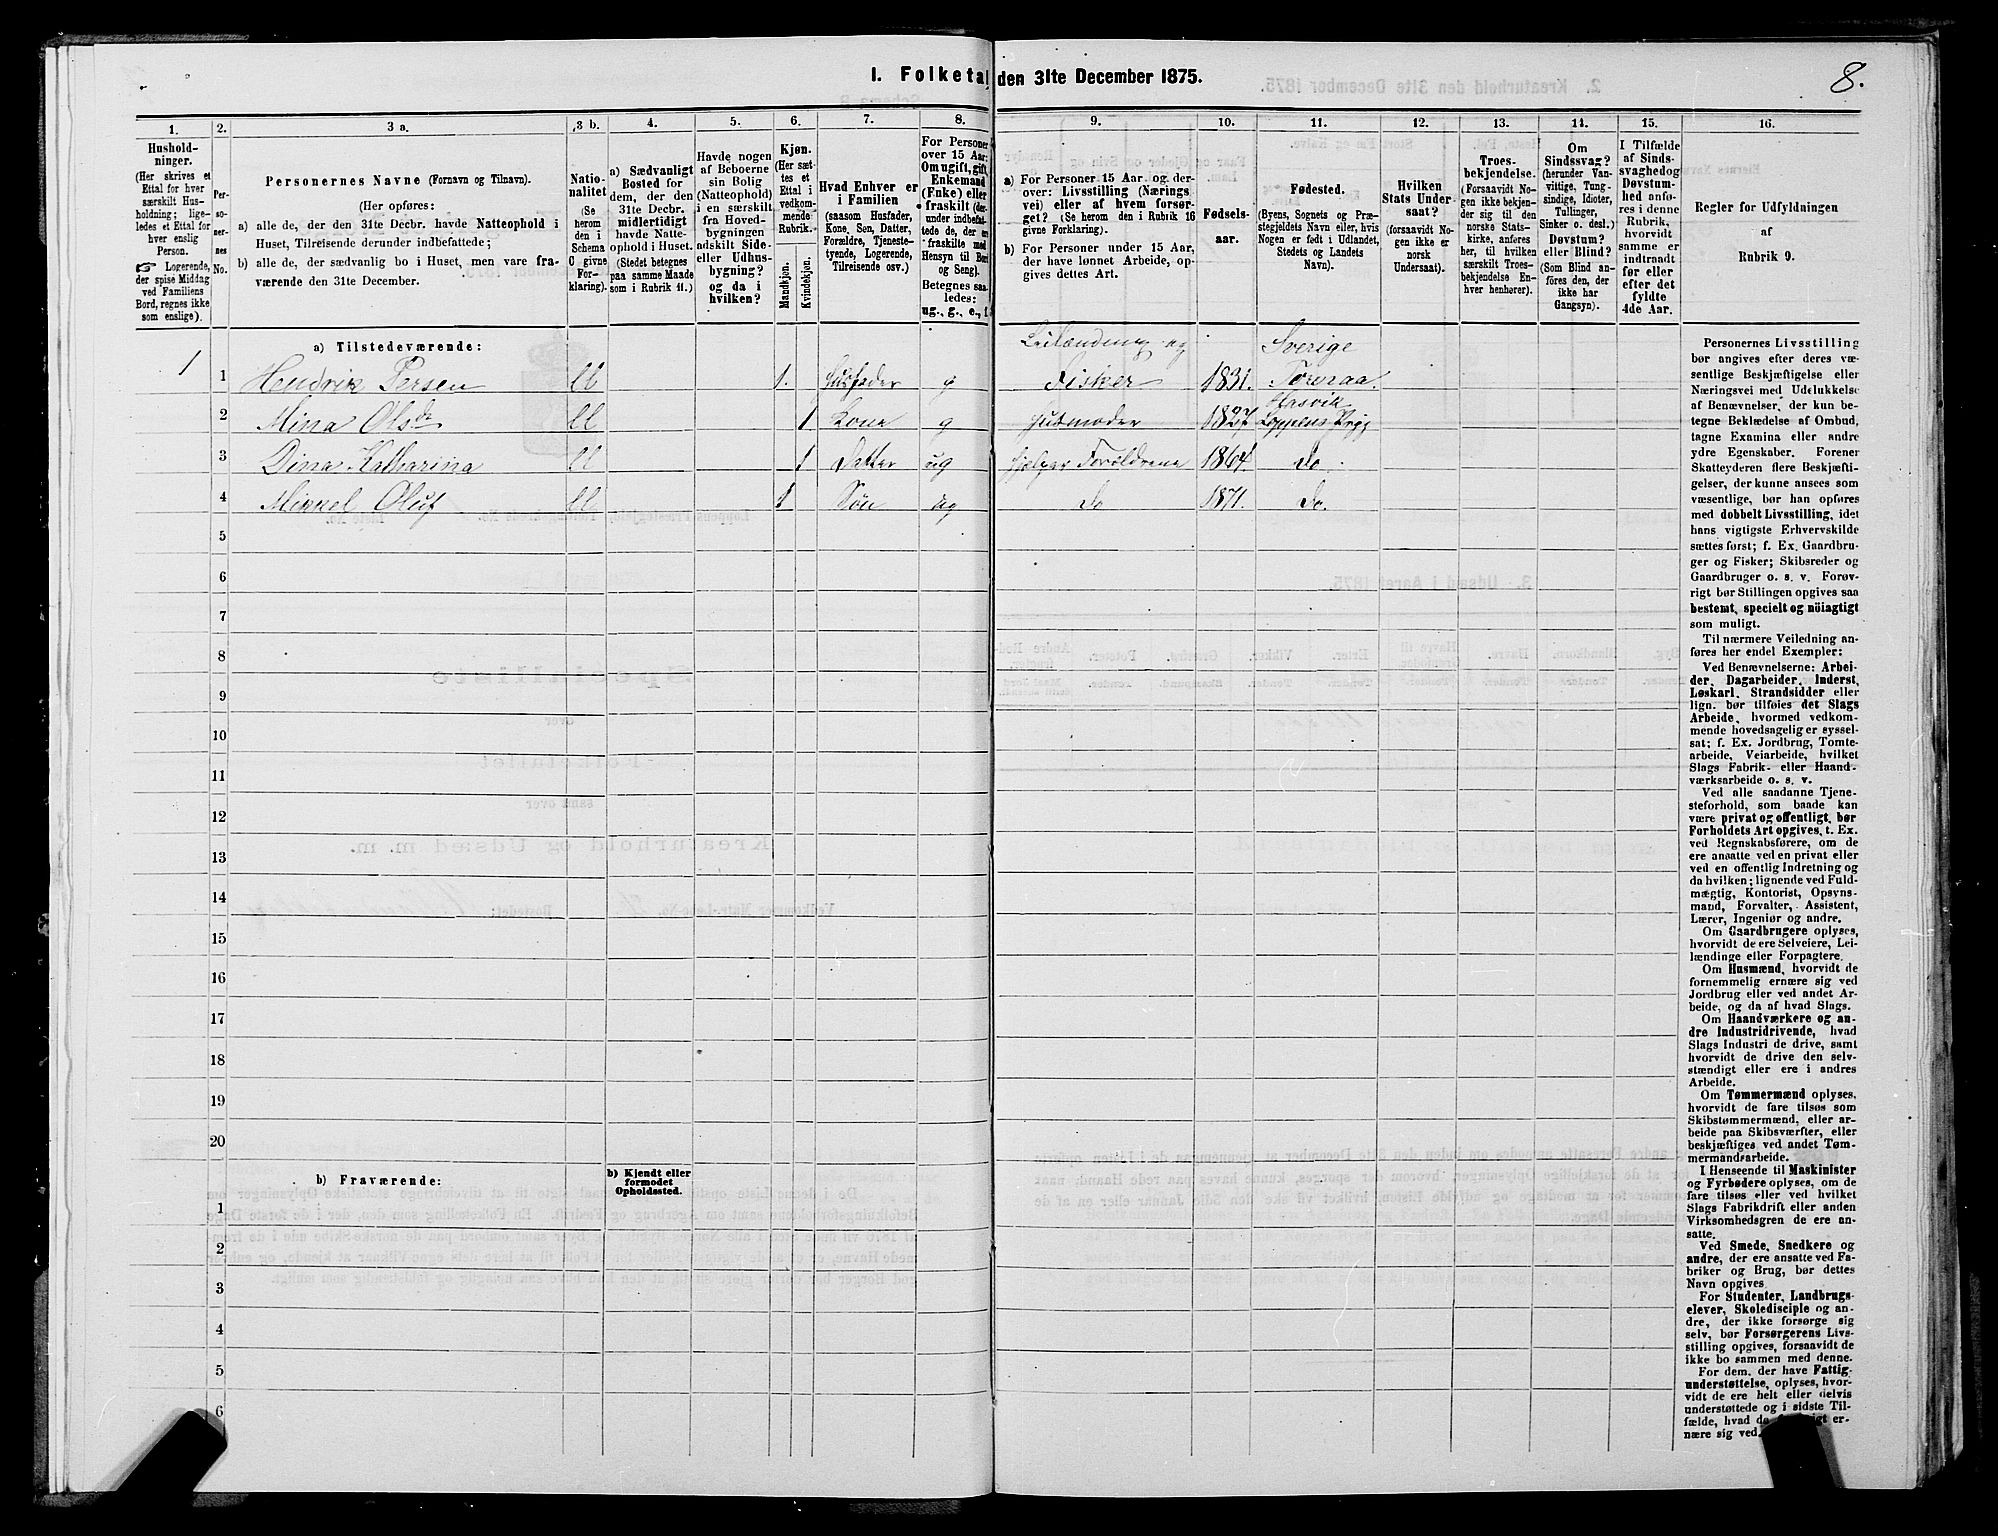 I. Folketal den 31te December 1875.
8.
1. 2. 3 a. 3 b. 4. 5. 6. 7. 8. 9. 10. 11. 12. 13. 14. 15. 16.
Hushold-
ninger.
(Her skrives et
Ettal for hver
særskilt Hus-
holdning; lige-
ledes et Ettal for
hver enslig
Person.
☞ Logerende,
der spise Middag
ved Familiens
Bord, regnes ikke
som enslige).
Per-
sone-
nes
No.
Personernes Navne (Fornavn og Tilnavn).
(Her opføres:
a) alle de, der den 31te Decbr. havde Natteophold i
Huset, Tilreisende derunder indbefattede;
b) alle de, der sædvanlig bo i Huset, men vare fra-
værende den 31te December.
Natio-
nalitet
(Se
herom
den i
Schema
C givne
For-
klaring).
a) Sædvanligt
Bosted for
dem, der den
31te Decbr.
midlertidigt
havde Natte-
ophold i Huset.
(Stedet betegnes
paa samme Maade
som i Rubrik 11.)
Havde nogen
af Beboerne
sin Bolig
(Natteophold)
i en særskilt
fra Hoved-
bygningen
adskilt Side-
eller Udhus-
bygning?
og da i
hvilken?
Kjøn.
(Her sæt-
tes et
Ettal i
vedkom-
mende
Rubrik.
Mandkjøn.
Kvindekjøn.
Hvad Enhver er
i Familien
(saasom Husfader,
Kone, Søn, Datter,
Forældre, Tjeneste-
tyende, Logerende,
Tilreisende osv.)
For Personer
over 15 Aar:
Om ugift, gift,
Enkemand
(Enke) eller
fraskilt (der-
under indbefat-
tede de, der er
fraskilte med
Hensyn til Bord
og Seng).
Betegnes saa-
ledes:
ug., g., e.,
a) For Personer 15 Aar og der-
over: Livsstilling (Nærings-
vei) eller af hvem forsør-
get? (Se herom den i Rubrik 16
givne Forklaring).
b) For Personer under 15 Aar,
der have lønnet Arbeide, op-
gives dettes Art.
Fødsels-
aar.
Fødested.
(Byens, Sognets og Præ-
stegjeldets Navn eller, hvis
Nogen er født i Udlandet,
Stedets og Landets
Navn).
Hvilken
Stats Under-
saat?
(forsaavidt No-
gen ikke er
norsk
Undersaat).
Troes-
bekjendelse.
(Forsaavidt No-
gen ikke bekjen-
der sig til den
norske Stats-
kirke, anføres
her, til hvilken
særskilt Troes-
bekjendelse En-
hver henhører).
Om
Sindssvag?
(herunder Van-
vittige, Tung-
sindige, Idioter,
Tullinger,
Sinker o. desl.)
Døvstum?
eller Blind?
(Som Blind an-
føres den, der
ikke har
Gangsyn).
I Tilfælde
af Sinds-
svaghed og
Døvstum-
hed anfø-
res i denne
Rubrik,
hvorvidt
samme er
indtraadt
før eller
efter det
fyldte
4de Aar.
Regler for Udfyldningen
af
Rubrik 9.
a) Tilstedeværende:
Leilænding og
Sverige
1 1 Hendrik Persen ll 1. Husfader g Fisker 1831. Torvraa.
Hasvik
2 Mina Olsdr ll 1 Kone g Husmoder 1827 Loppens Prgj
3 Dina Katharina ll 1 Datter ug hjelper Forældrene 1864 Do.
4 Mikkel Oluf ll 1 Søn ug Do 1871. Do.
5
6
7
8
9
10
11
12
13
14
15
16
17
18
19
20
b) Fraværende:
b) Kjendt eller
formodet
Opholdssted.
1
2
3
4
5
6
Personernes Livsstilling
bør angives efter deres væ-
sentlige Beskjæftigelse eller
Næringsvei med Udelukkelse
af Benævnelser, der kun be-
tegne Beklædelse af Ombud,
tagne Examina eller andre
ydre Egenskaber. Forener
Skatteyderen flere Beskjæfti-
gelser, der kunne ansees som
væsentlige, bør han opføres
med dobbelt Livsstilling, idet
hans vigtigste Erhvervskilde
sættes først; f. Ex. Gaardbru-
ger og Fisker; Skibsreder og
Gaardbruger o. s. v. Forøv-
rigt bør Stillingen opgives saa
bestemt, specielt og nöiagtigt
som muligt.
Til nærmere Veiledning an-
føres her endel Exempler:
Ved Benævnelserne: Arbei-
der, Dagarbeider, Inderst,
Løskarl, Strandsidder eller
lign. bør tilføies det Slags
Arbeide, hvormed vedkom-
mende hovedsagelig er syssel-
sat; f. Ex. Jordbrug, Tomte-
arbeide, Veiarbeide, hvilket
Slags Fabrik- eller Haand-
værksarbeide o. s. v.
Ved alle saadanne Tjene-
steforhold, som baade kan
være privat og offentligt, bør
Forholdets Art opgives, t. Ex.
ved Regnskabsførere, om de
ere ansatte ved en privat eller
ved en offentlig Indretning og
da hvilken; lignende ved Fuld-
mægtig, Kontorist, Opsyns-
mand, Forvalter, Assistent,
Lærer, Ingeniør og andre.
Om Gaardbrugere oplyses,
hvorvidt de ere Selveiere, Lei-
lændinge eller Forpagtere.
Om Husmænd, hvorvidt de
fornemmelig ernære sig ved
Jordbrug eller ved andet Ar-
beide, og da af hvad Slags.
Om Haandværkere og an-
dre Industridrivende, hvad
Slags Industri de drive, samt
hvorvidt de drive den selv-
stændigt eller ere i andres
Arbeide.
Om Tømmermænd oplyses,
hvorvidt de fare tilsøs som
Skibstømmermænd, eller ar-
beide paa Skibsværfter, eller
beskjæftiges ved andet Tøm-
mermandsarbeide.
I Henseende til Maskinister
og Fyrbødere oplyses, om de
fare tilsøs eller ved hvilket
Slags Fabrikdrift eller anden
Virksomhedsgren de ere an-
satte.
Ved Smede, Snedkere og
andre, der ere ansatte ved Fa-
briker og Brug, bør dettes
Navn opgives.
For Studenter, Landbrugs-
elever, Skoledisciple og an-
dre, der ikke forsørge sig
selv, bør Forsørgerens Livs-
stilling opgives, forsaavidt de
ikke bo sammen med denne.
For dem, der have Fattig-
understøttelse, oplyses, hvor-
vidt de ere helt eller delvis
understøttede og i sidste Til-
fælde, hvad de er-
nære sig ved.